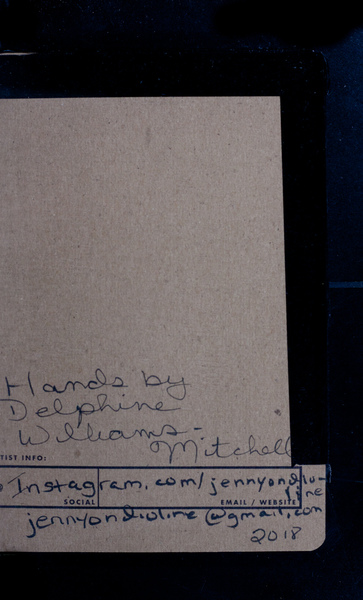 Hands by
Delphine
Williams-
Mitchell
TIST INFO:
Instagram.com/jennyondioline
SOCIAL
EMAIL / WEBSITE
jennyondioline@gmail.com
2018